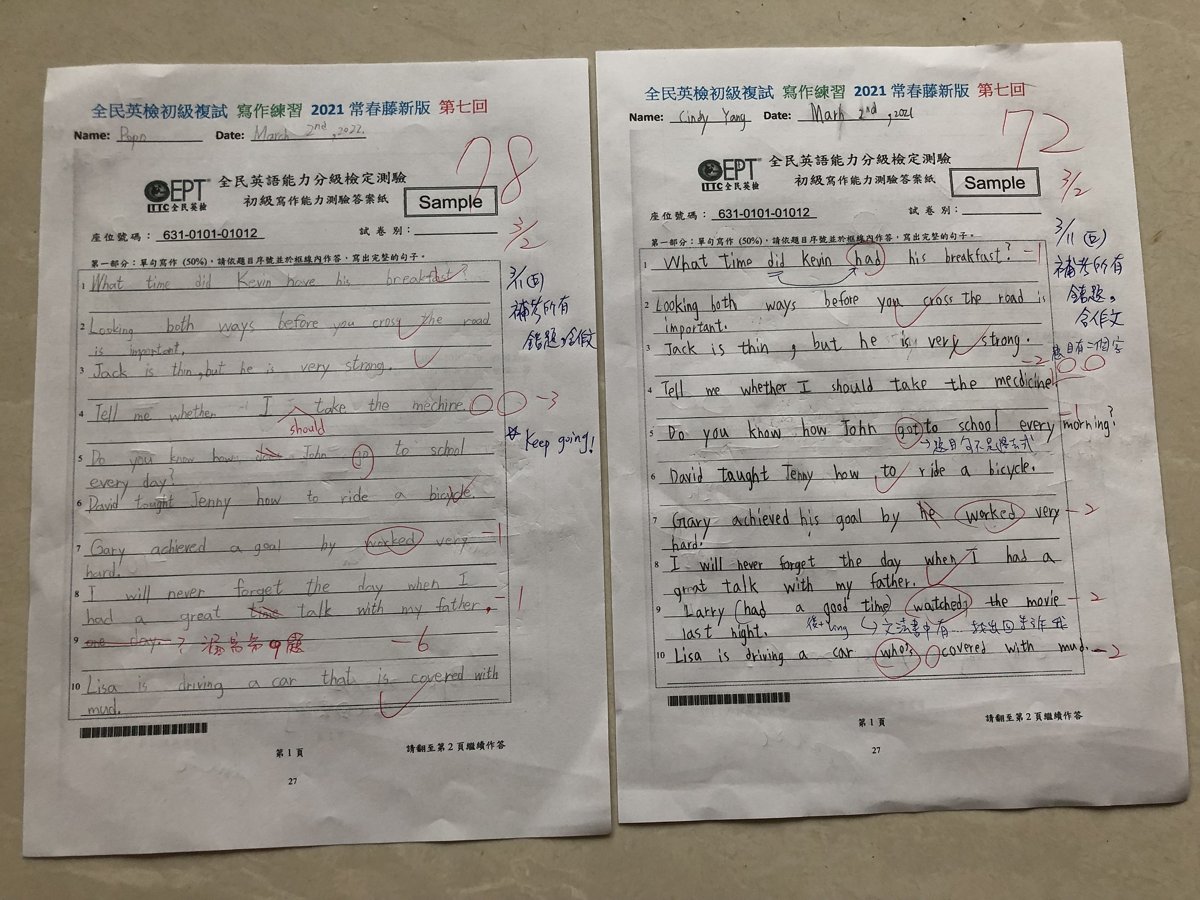 全民英檢初級複試 寫作練習 2021 常春藤新版 第七回
Name: Date: March 2nd, 2022.
78
GEPT
LTTC 全民英檢
全民英語能力分級檢定測驗
初級寫作能力測驗答案紙
Sample
3/2
座位號碼: 631-0101-01012 試卷別:
第一部分:單句寫作 (50%),請依題目序號並於框線內作答,寫出完整的句子。
1 What time did Kevin have his breakfast?
3/11 (五)
補考所有
錯題,含作文
2 Looking both ways before you cross the road
is important.
3 Jack is thin, but he is very strong.
4 Tell me whether I take the mechine. -3
should
Keep going!
5 Do you know how John go to school
every day?
6 David tought Jenny how to ride a bicycle.
7 Gary achieved a goal by worked very -1
hard.
8 I will never forget the day when I
had a great time talk with my father. -1
9 one day. ? -6
10 Lisa is driving a car that is covered with
mud.
第 1 頁
請翻至第 2 頁繼續作答
27
全民英檢初級複試 寫作練習 2021 常春藤新版 第七回
Name: Cindy Yang Date: Marh 2nd, 2021
72
GEPT
LTTC 全民英檢
全民英語能力分級檢定測驗
初級寫作能力測驗答案紙
Sample
3/2
座位號碼: 631-0101-01012 試卷別:
第一部分:單句寫作 (50%),請依題目序號並於框線內作答,寫出完整的句子。
3/11 (五)
補考所有
錯題,
含作文
1 What time did Kevin had his breakfast? -1
2 Looking both ways before you cross the road is
important.
3 Jack is thin, but he is very strong.
題目有二個字
-2
4 Tell me whether I should take the mecdicine
5 Do you know how John got to school every morning? -1
題目句不是過去式
6 David taught Jenny how to ride a bicycle.
7 Gary achieved his goal by he worked very -2
hard.
8 I will never forget the day when I had a
great talk with my father.
9 Larry (had a good time) watched the movie -2
last night. 後+Ving 文法書中有
10 Lisa is driving a car who's covered with mud. -2
第 1 頁
請翻至第 2 頁繼續作答
27